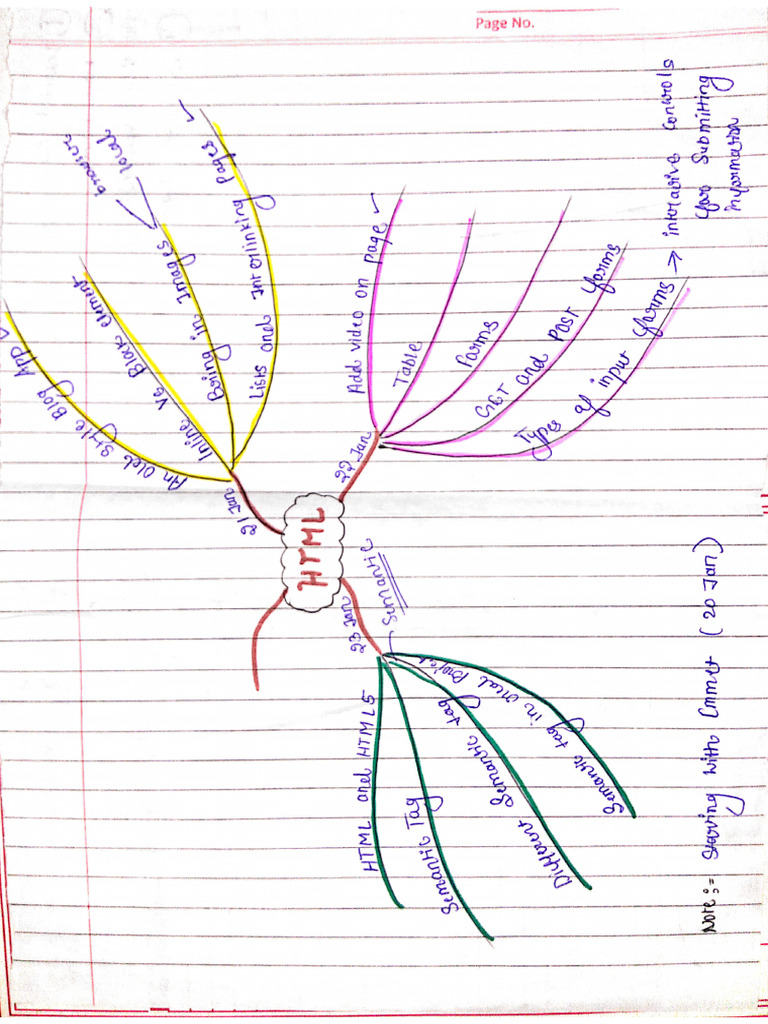 Page No.
HTML
21 Jan
An old style Blog App
Inline Vs Block element
Being in Images
browser
local
Lists and Interlinking Pages
22 Jan
Add video on page
Table
Forms
GET and POST forms
Types of input forms → interactive controls
for submitting
information
23 Jan
Semantic
HTML and HTML5
Semantic Tag
Different Semantic tag
Semantic tag in real project
Note :- Starving with Emmet (20 Jan)